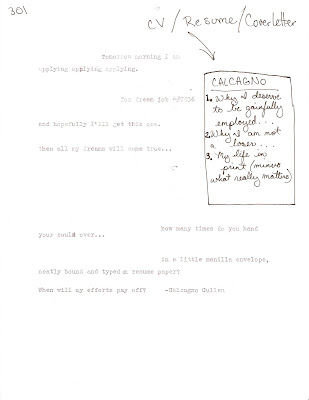 301
CV/Resume/Coverletter
Tomorrow morning I am
applying applying applying.
CALCAGNO
1. Why I deserve
to be gainfully
employed...
2. Why I am not
a loser...
3. My life in
print (minus
what really matters)
for dream job
and hopefully I'll get this one.
Then all my dreams will come true...
How many times do you hand
your sould over...
in a little manilla envelope,
neatly bound and typed on resume paper?
When will my efforts pay off? -Calcagno Cullen